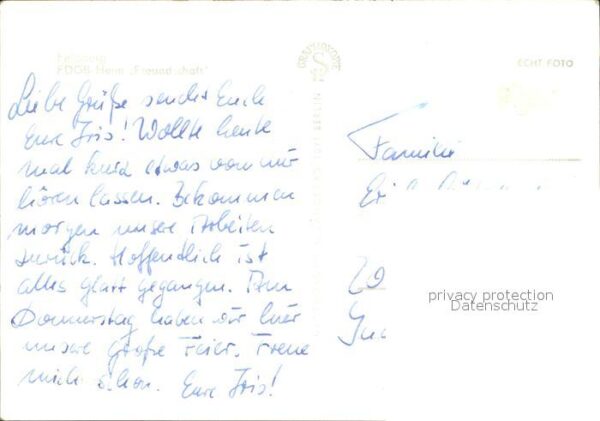 FDGB-Heim „Freundschaft"
ECHT FOTO
Liebe Grüße sendet Euch
Eure Iris! Wollte heute
mal kurz etwas von mir
hören lassen. Bekommen
morgen unsere Arbeiten
zurück. Hoffentlich ist
alles glatt gegangen. Am
Donnerstag haben wir hier
unsere große Feier. Freue
mich schon. Eure Iris!
Familie
privacy protection
Datenschutz